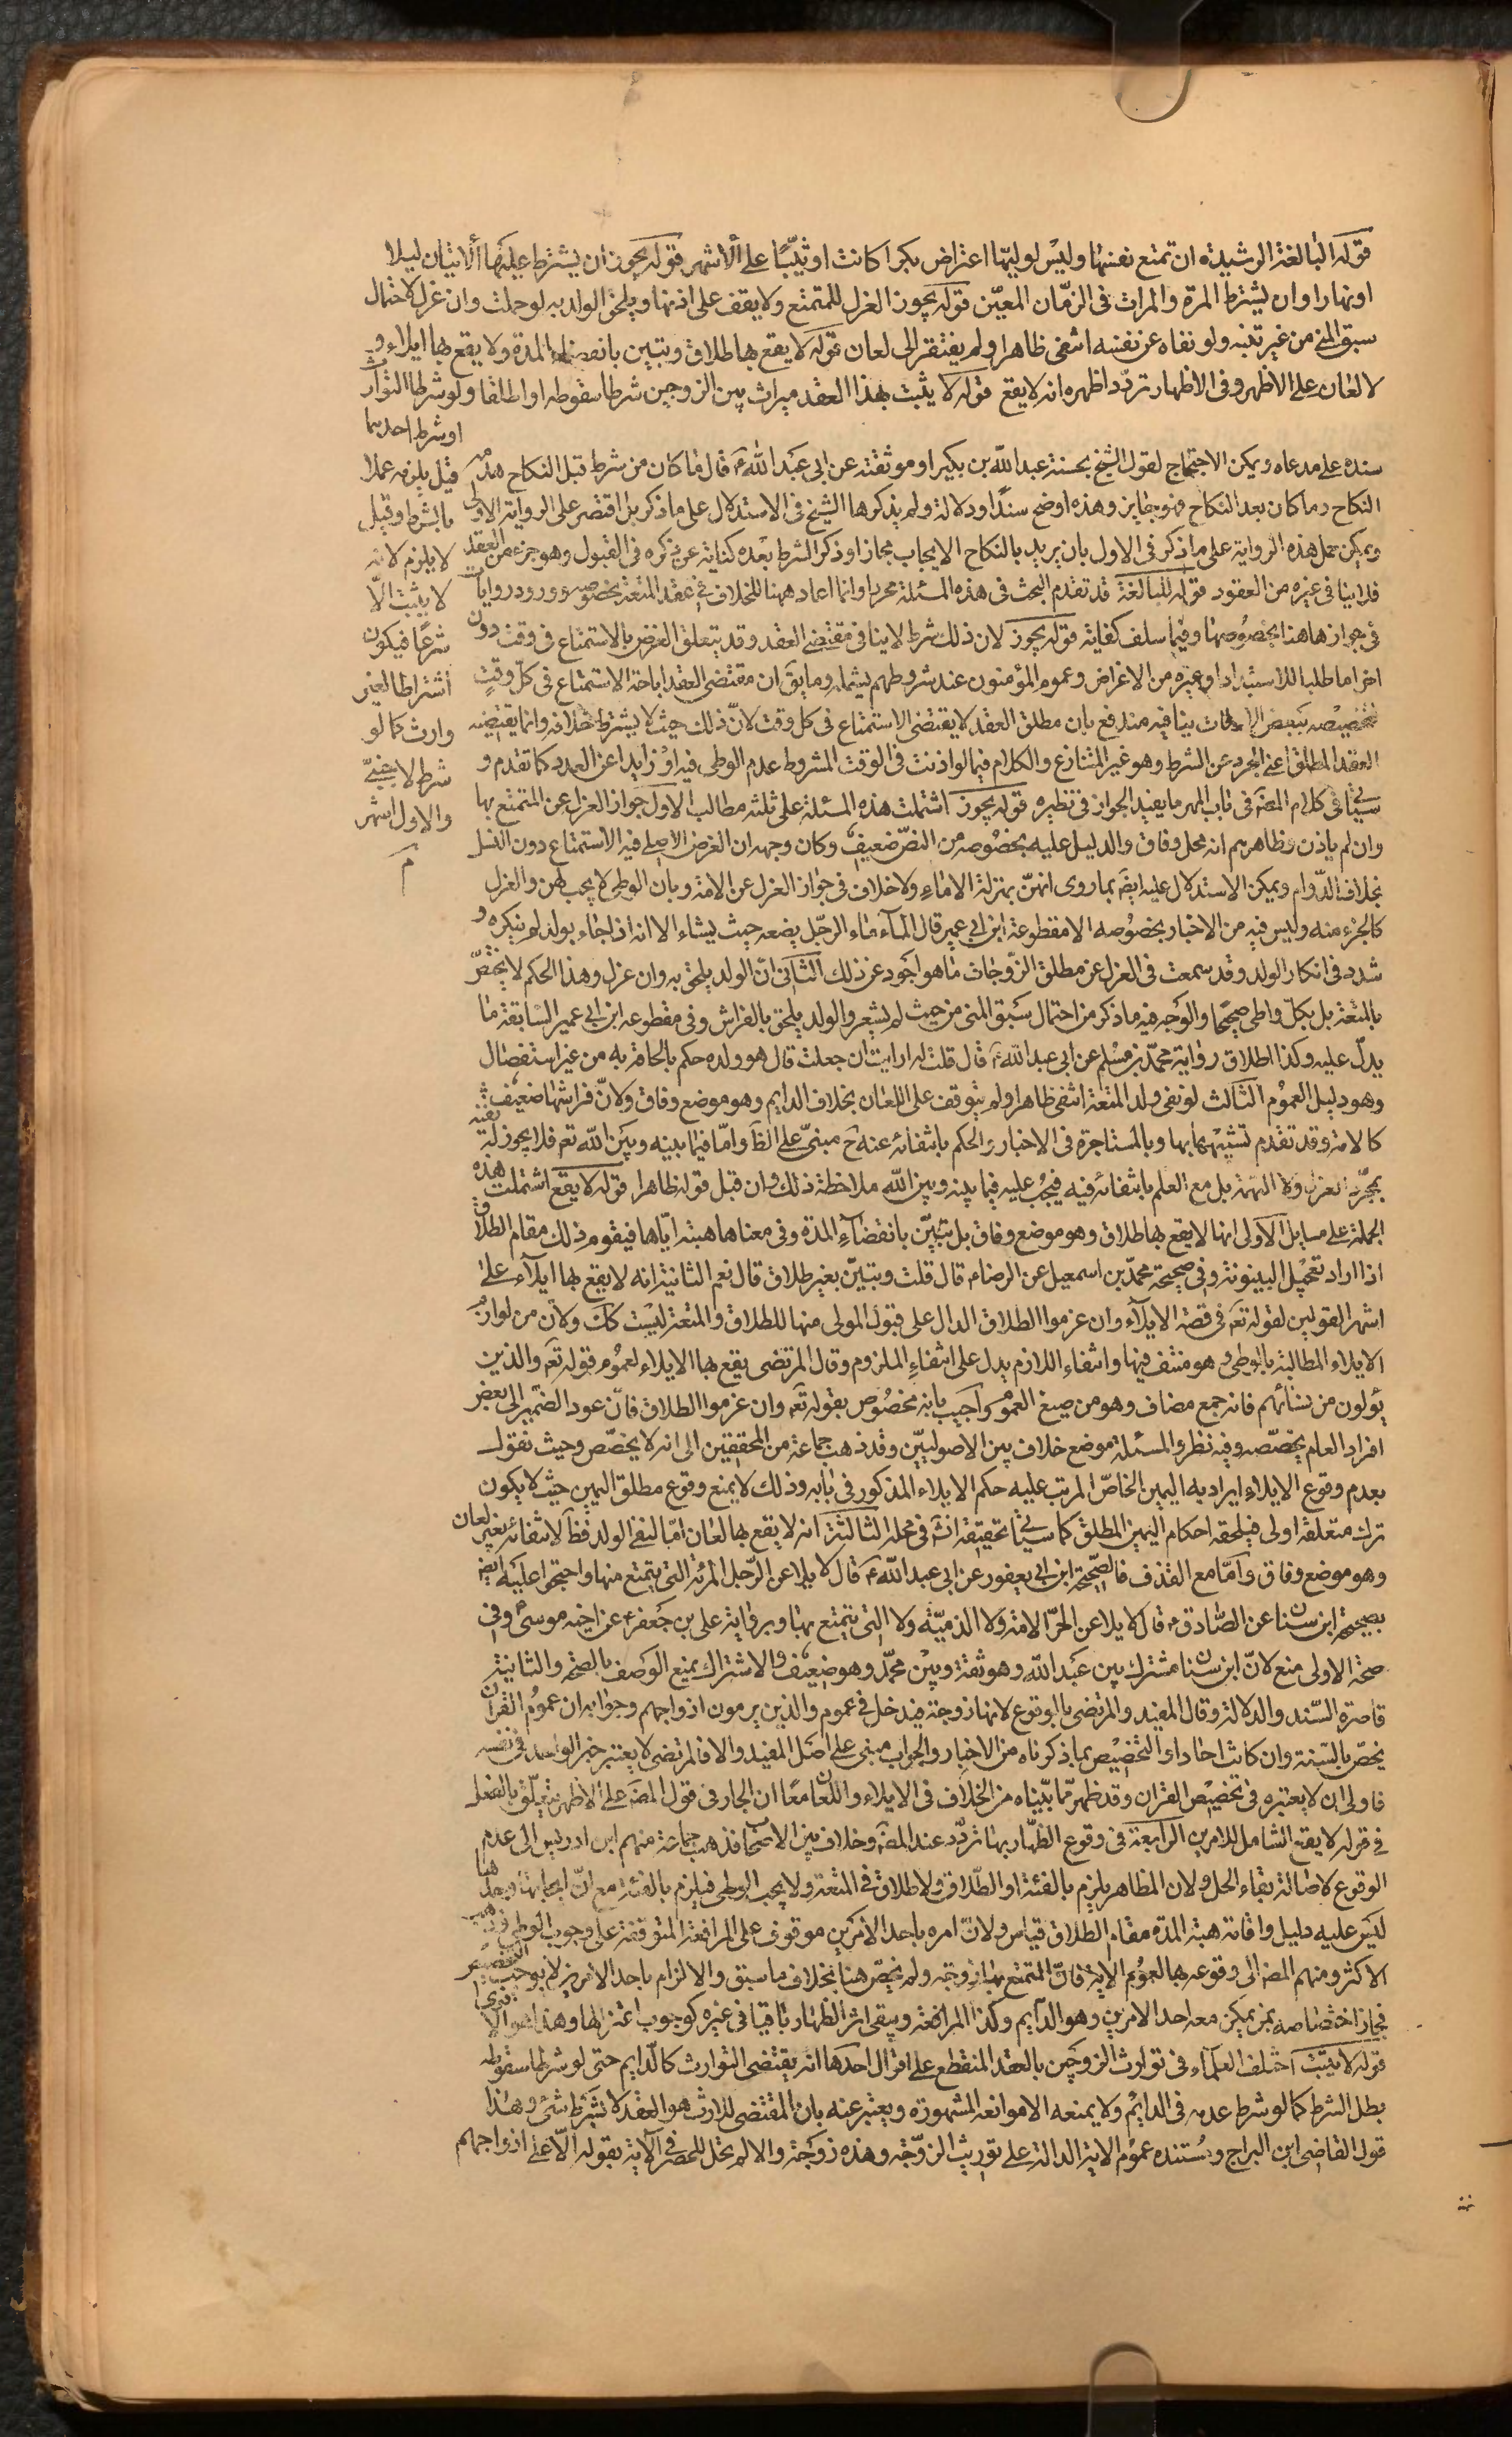 قوله للبالغة الرشيدة ان تمتع نفسها وليس لوليها اعتراض بكرا كانت او ثيّبًا على الاشهر قوله يجوز ان يشترط عليها الاتيان ليلا
او نهارا وان يشترط المرة والمرات فى الزمان المعيّن قوله يجوز العزل للمتمتع ولا يقف على اذنها ويلحق الولد به لو حملت وان عزل لاحتمال
سبق المنى من غير تنبه ولو نفاه عن نفسه انتفى ظاهرا ولم يفتقر الى لعان قوله لا يقع بها طلاق وتبين بانقضاء المدة ولا يقع بها ايلاء و
لا لعان على الاظهر وفى الاظهار تردّد اظهره انه لا يقع قوله لا يثبت بهذا العقد ميراث بين الزوجين شرطا سقوطه او اطلقا ولو شرطا التوارث
او شرط احدهما
قيل يلزم عملا
بالشرط وقيل
لا يلزم لانه
لا يثبت الّا
شرعًا فيكون
اشتراطا لغير
وارث كما لو
شرط لاجنبىّ
والاول اشهر
م
سنده على مدعاه ويمكن الاحتجاج لقول الشيخ بحسنة عبد الله بن بكير او موثقته عن ابى عبد الله ع قال ما كان من شرط قبل النكاح هدمه
النكاح وما كان بعد النكاح فهو جايز وهذه اوضح سندًا ودلالة ولم يذكرها الشيخ فى الاستدلال على ما ذكر بل اقتصر على الرواية الاولى
ويمكن حمل هذه الرواية على ما ذكر فى الاول بان يريد بالنكاح الايجاب مجازا وذكر الشرط بعده كناية عن ذكره فى القبول وهو جزء من العقد
فلا ينافى غيره من العقود قوله للبالغة قد تقدم البحث فى هذه المسئلة محررا وانما اعاد ههنا للخلاف فى عقد المتعة بخصوصه وورود روايات
فى جوازها هنا بخصوصها وفيما سلف كفاية قوله يجوز لان ذلك شرط لا ينافى مقتضى العقد وقد يتعلق الغرض بالاستمتاع فى وقت دون
اخر اما طلبا للاستبداد او غيره من الاغراض وعموم المؤمنون عند شروطهم يشمله وما يق ان مقتضى العقد اباحة الاستمتاع فى كلّ وقتٍ
فتخصيصه ببعض الاوقات ينافيه مندفع بان مطلق العقد لا يقتضى الاستمتاع فى كل وقت لانّ ذلك حيث لا يشترط خلافه وانما يقتضيه
العقد المطلق اعنى المجرد عن الشرط وهو غير المتنازع والكلام فيما لو اذنت فى الوقت المشروط عدم الوطى فيه او زايدا عن العدد كما تقدم و
سيئاتى فى كلام المصَ فى باب المهر ما يفيد الجواز فى نظيره قوله يجوز اشتملت هذه المسئلة على ثلثه مطالب الاول جواز العزل عن المتمتع بها
وان لم ياذن وظاهرهم انه محل وفاق والدليل عليه بخصوصه من النصّ ضعيف وكان وجهه ان الغرض الاصلى فيه الاستمتاع دون النسل
بخلاف الدّوام ويمكن الاستدلال عليه ايضَ بما روى انهنّ بمنزلة الاماء ولا خلاف فى جواز العزل عن الامة وبان الوطى لا يجب لهن والعزل
كالجزء منه وليس فيه من الاخبار بخصوصه الا مقطوعة ابن ابى عمير قال الماء ماء الرجل يضعه حيث يشاء الا انه اذا جاء بولد لم ينكره و
شدد فى انكار الولد وقد سمعت فى العزل عن مطلق الزوجات ما هو اجود عن ذلك الثانى انّ الولد يلحق به وان عزل وهذا الحكم لا يختصّ
بالمتعة بل بكلّ واطى صحيحًا والوجه فيه ما ذكر من احتمال سَبق المنى من حيث لم يشعر والولد يلحق بالفراش وفى مقطوعه ابن ابى عمير السّابقة ما
يدلّ عليه وكذا اطلاق رواية محمّد بن مسلم عن ابى عبد الله ع قال قلت له ارايت ان حملت قال هو ولده حكم بالحاقه به من غير استفصال
وهو دليل العموم الثالث لو نفى ولد المتعة انتفى ظاهرا ولم يتوقف على اللعان بخلاف الدايم وهو موضع وفاق ولانّ فراشها ضعيف
كالامة وقد تقدم تشبيهها بها وبالمستاجرة فى الاخبار والحكم بانتفائه عنه ح مبنىّ على الظَ وامّا فيما بينه وبين الله تعَ فلا يجوز له نفيه
بمجرّد العزل ولا التهمة بل مع العلم بانتفائه فيه فيجب عليه فيما بينه وبين الله ملاحظة ذلك وان قبل قوله ظاهرا قوله لا يقع اشتملت هذه
الجملة على مسايل الاولى انها لا يقع بها طلاق وهو موضع وفاق بل تبيّن بانقضاء المدة وفى معناها هبته ايّاها فيقوم ذلك مقام الطلاق
اذا اراد تعجيل البينونة وفى صحيحة محمّد بن اسمعيل عن الرضا ع قال قلت وتبيّن بغير طلاق قال نعم الثانية انه لا يقع بها ايلاء على
اشهر القولين لقوله تعَ فى قصة الايلاء وان عزموا الطلاق الدال على قبول المولى منها للطلاق والمتعة ليست كك ولانّ من لوازم
الايلاء المطالبة بالوطى وهو منتف فيها وانتفاء اللازم يدل على انتفاء الملزوم وقال المرتضى يقع بها الايلاء لعموم قوله تعَ والذين
يؤلون من نسائهم فانه جمع مضاف وهو من صيغ العموم واجيب بانه مخصوص بقوله تعَ وان عزموا الطلاق فانّ عود الضمير الى بعض
افراد العام يخصّصه وفيه نظر والمسئلة موضع خلاف بين الاصوليّين وقد ذهب جماعة من المحققين الى انه لا يخصّص وحيث نقول
بعدم وقوع الايلاء يراد به اليمين الخاصّ المرتب عليه حكم الايلاء المذكور فى بابه وذلك لا يمنع وقوع مطلق اليمين حيث لا يكون
ترك متعلقه اولى فيلحقه احكام اليمين المطلق كما سيئاتى تحقيقه انشَ فى محله الثالثة انه لا يقع بها لعان امّا لنفى الولد فظَ لانتفائه بغير لعان
وهو موضع وفاق وامّا مع القذف فالصحيحة ابن ابى يعفور عن ابى عبد الله ع قال لا يلاعن الرّجل المرئة التى يتمتع منها واحتجوا عليه ايضَ
بصحيحة ابن سنان عن الصّادق ع قال لا يلاعن الحرّ الامة ولا الذميّة ولا التى يتمتع بها وبرواية على بن جعفر ع عن اخيه موسى ع وفى
صحة الاولى منع لانّ ابن سنان مشترك بين عبد الله وهو ثقة وبين محمّد وهو ضعيف والاشتراك يمنع الوصف بالصحة والثانية
قاصرة السّند والدلالة وقال المفيد والمرتضى بالوقوع لانها زوجة فيدخل فى عموم والذين يرمون ازواجهم وجوابه ان عموم القران
يخصّ بالسّنة وان كانت احادا والتخصيص بما ذكرناه من الاخبار والجواب مبنى على اصل المفيد والا فالمرتضى لا يعتبر خبر الواحد فى نفسه
فاولى ان لا يعتبره فى تخصيص القران وقد ظهر ممّا بيّناه من الخلاف فى الايلاء واللعان معًا ان الجار فى قول المصَ على الاظهر يتعلّق بالفعل
فى قوله لا يقع الشامل للامرين الرابعة فى وقوع الظهار بها تردّد عند المصَ وخلاف بين الاصحاب فذهب جماعة منهم ابن ادريس الى عدم
الوقوع لاصالة بقاء الحل ولان المظاهر يلزم بالفئة او الطّلاق ولا طلاق فى المتعة ولا يجب الوطى فيلزم بالفئة مع انّ ايجابها وحدها
ليس عليه دليل واقامة هبة المدّة مقام الطلاق قياس ولانّ امره باحد الامرين موقوف على المرافعة المتوقفة على وجوب الوطى وذهب
الاكثر ومنهم المصَ الى وقوعه بها لعموم الاية فانّ المتمتع بها زوجة ولم يخصّ هنا بخلاف ما سبق والالزام باحد الامرين لا يوجب التخصيص
فجاز اختصاصه بمن يمكن معه احد الامرين وهو الدّايم وكذا المرافعة ويبقى اثر الظهار باقيا فى غيره كوجوب اعتزالها وهذا هو الاقوى
قوله لا يثبت اختلف العلماء فى توارث الزوجين بالعقد المنقطع على اقوال احدها انه يقتضى التوارث كالدّايم حتى لو شرطا سقوطه
بطل الشرط كما لو شرط عدمه فى الدايم ولا يمنعه الا موانعه المشهورة ويعتبر عنه بان المقتضى للارث هو العقد لا بشرط شئ وهذا
قول القاضى ابن البراج ومُستنده عموم الاية الدالة على توريث الزوّجة وهذه زوجة والا لم تحل للحصر فى الآية بقوله الّا على ازواجهم